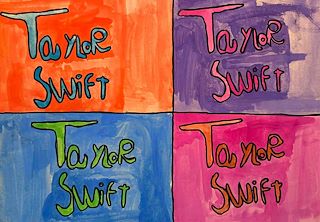 Taylor
Swift
Taylor
Swift
Taylor
Swift
Taylor
Swift